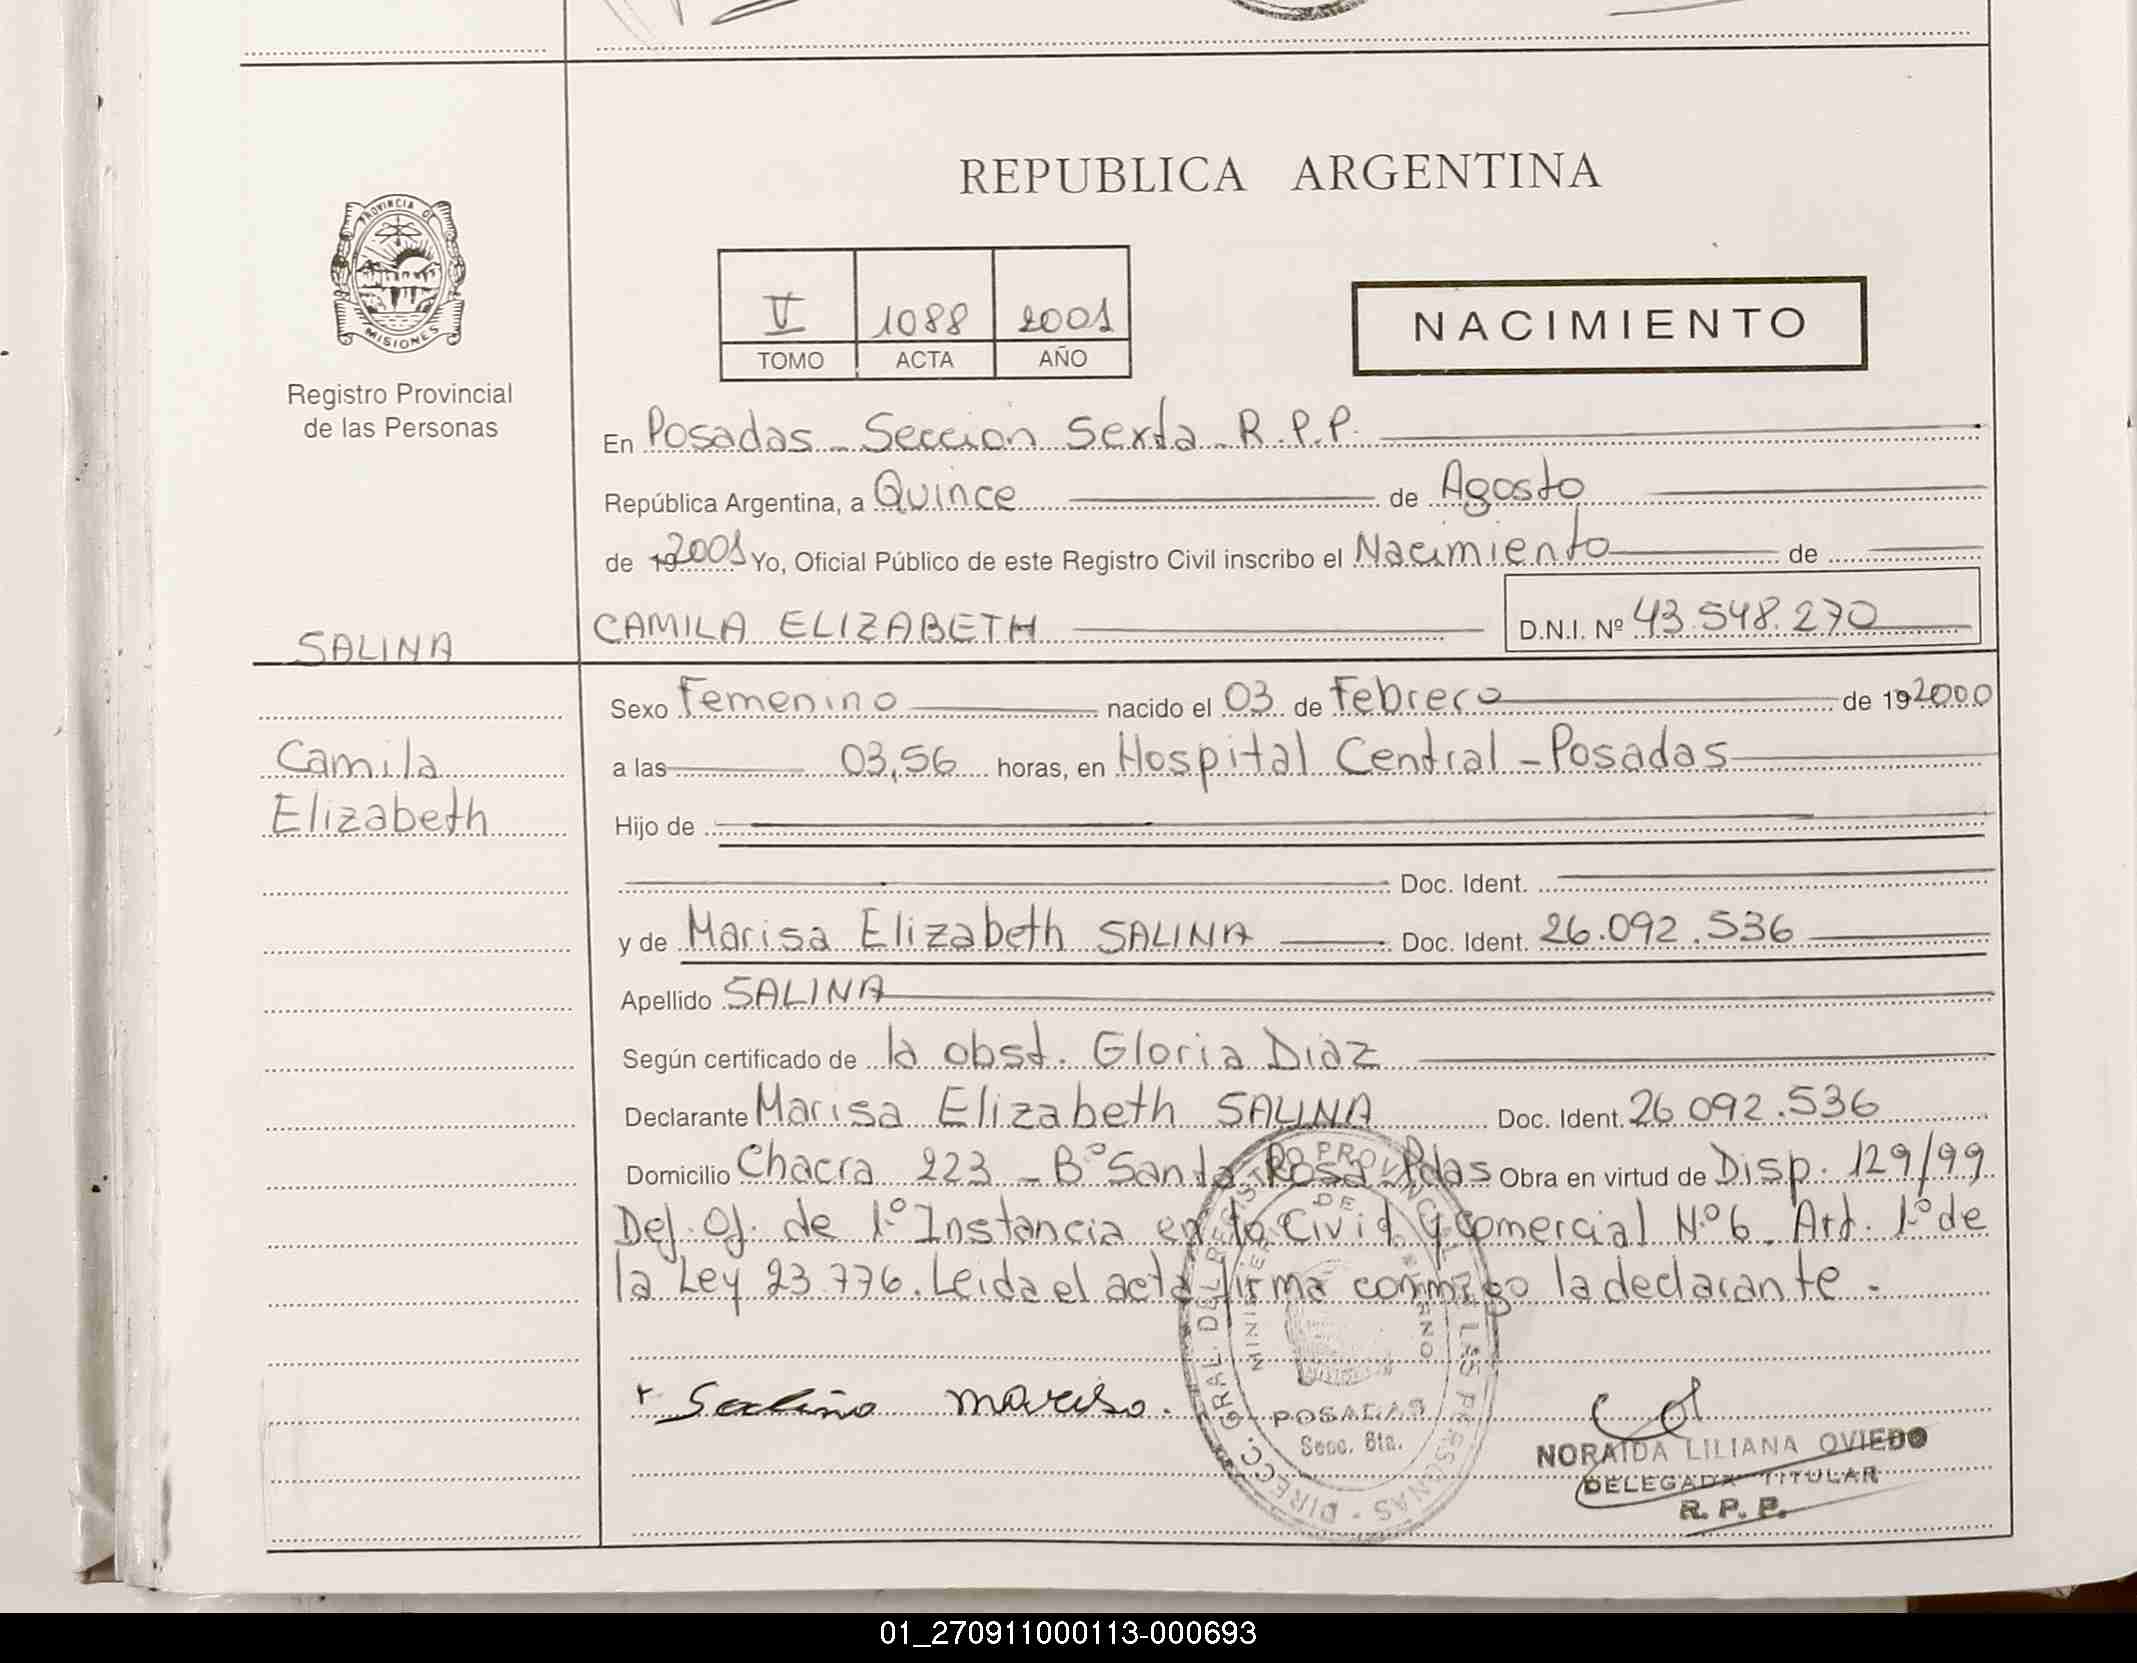 PROVINCIA DE
MISIONES
Registro Provincial
de las Personas
REPUBLICA ARGENTINA
V 1088 2001
TOMO ACTA AÑO
NACIMIENTO
En Posadas - Seccion Sexta - R.P.P.
República Argentina, a Quince de Agosto
de 19 2001 Yo, Oficial Público de este Registro Civil inscribo el Nacimiento de
CAMILA ELIZABETH D.N.I. Nº 43.548.270
SALINA
Camila
Elizabeth
Sexo Femenino nacido el 03 de Febrero de 19 2000
a las 03,56 horas, en Hospital Central - Posadas
Hijo de
Doc. Ident.
y de Marisa Elizabeth SALINA Doc. Ident. 26.092.536
Apellido SALINA
Según certificado de la obst. Gloria Diaz
Declarante Marisa Elizabeth SALINA Doc. Ident. 26.092.536
Domicilio Chacra 223 - Bº Santa Rosa Pdas Obra en virtud de Disp. 129/99
Def. Of. de 1º Instancia en lo Civil y Comercial Nº 6. Art. 1º de
la Ley 23.776. Leida el acta firma conmigo la declarante.
Salina Marisa.
DIRECC. GRAL. DEL REGISTRO PROVINCIAL DE LAS PERSONAS
MINISTERIO DE GOBIERNO
POSADAS
Secc. 6ta.
NORAIDA LILIANA OVIEDO
DELEGADA TITULAR
R. P. P.
01_270911000113-000693